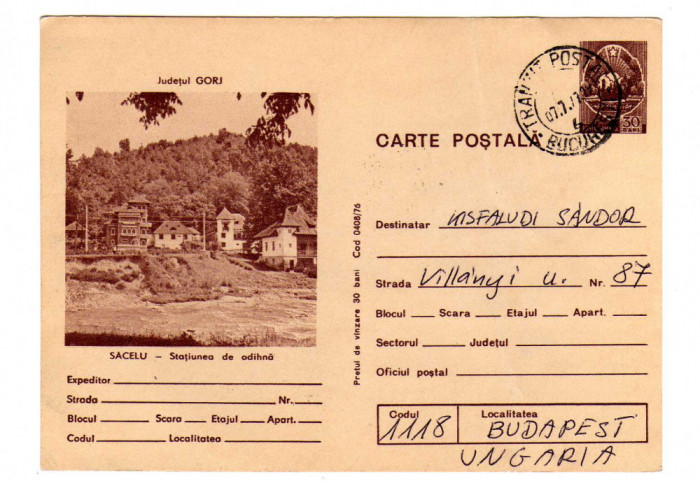 Județul GORJ
SĂCELU – Stațiunea de odihnă
Expeditor
Strada Nr.
Blocul Scara Etajul Apart.
Codul Localitatea
Prețul de vînzare 30 bani Cod 0408/76
TRANZIT POSTAL
BUCUR
30
BANI
CARTE POȘTALĂ
Destinatar KISFALUDI SÁNDOR
Strada Villányi u. Nr. 87
Blocul Scara Etajul Apart.
Sectorul Județul
Oficiul poștal
Codul Localitatea
1118 BUDAPEST
UNGARIA